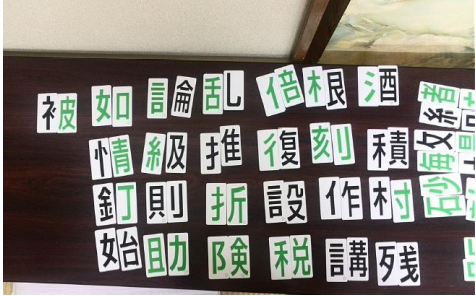 被 如 論 乱 倍 根 酒
情 級 推 復 刻 積
釘 則 折 設 作 村 砂
始 助 険 税 講 残